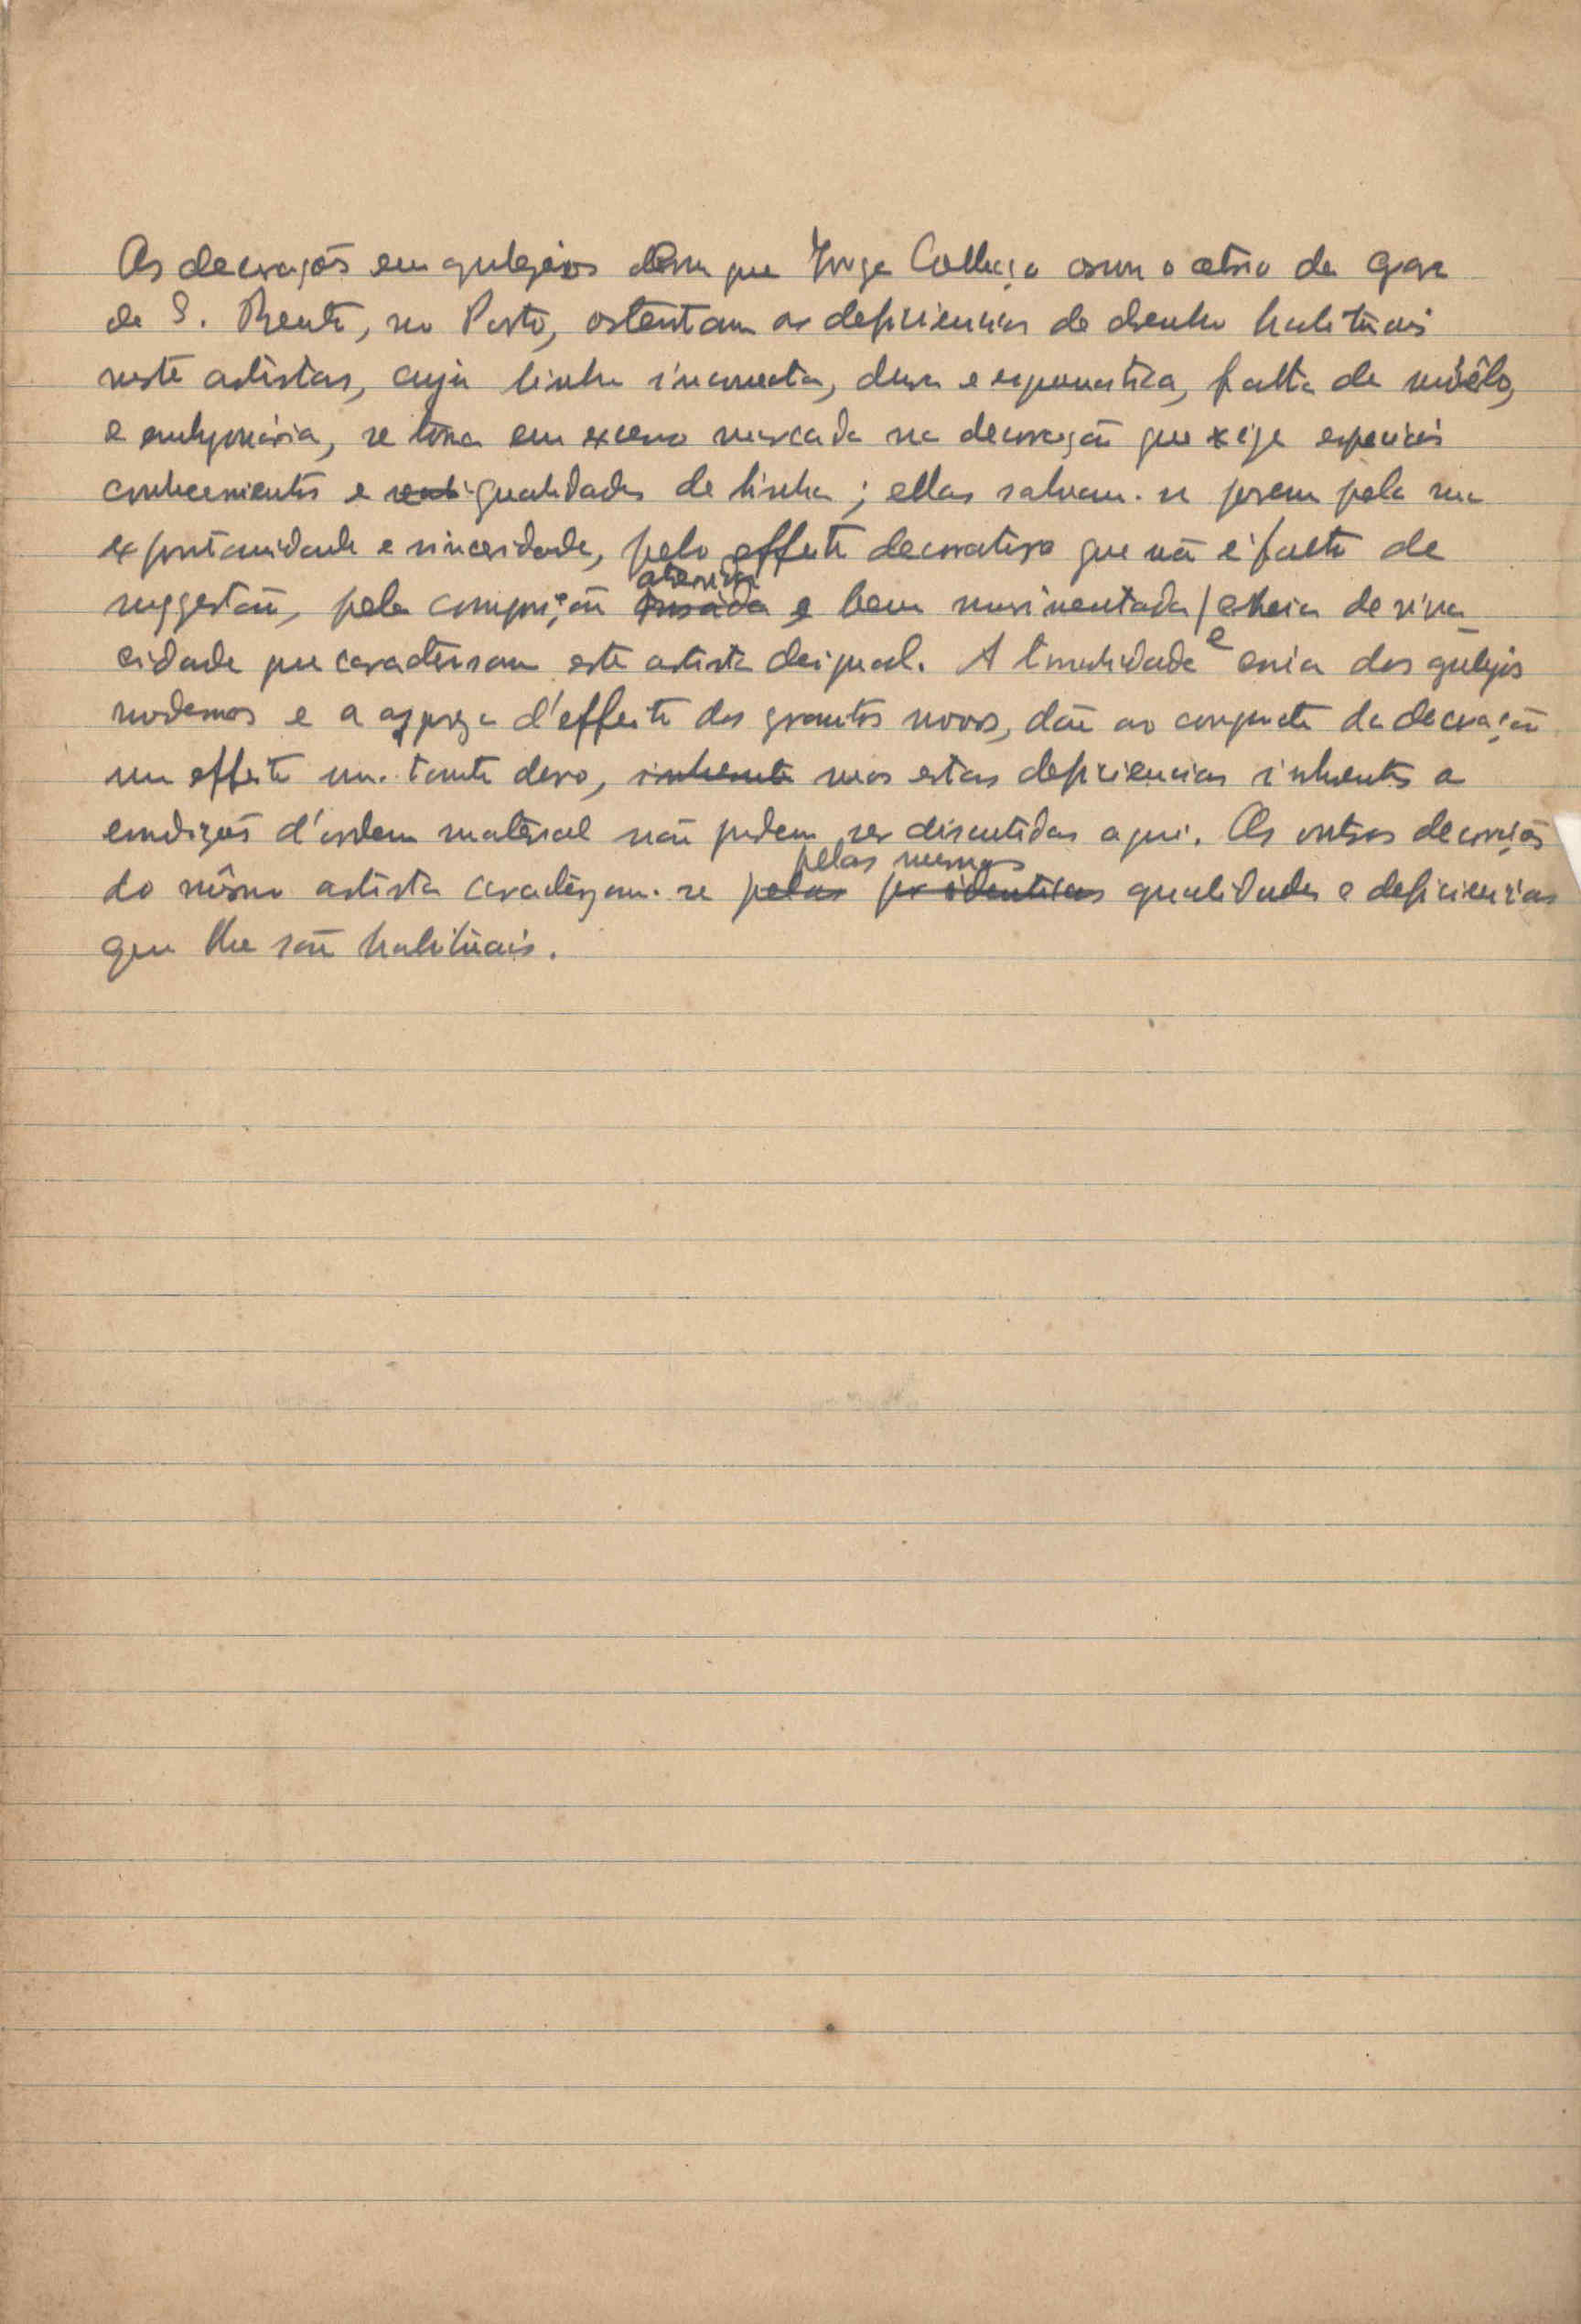 As decorações em azulejos com que Jorge Collaço ornou o atrio da gare
de S. Bento, no Porto, ostentam as deficiencias de desenho habituais
neste artistas, cuja linha incorrecta, dura e esquematica, falta de
e embrionária, se torna em excesso marcada na decoração que exige especiais
conhecimentos e qualidades de linha; ellas salvam-se porem pela sua
expontanidade e sinceridade, pelo effeito decorativo que não é falto de
suggestão, pela composição atrevida ousada e bem movimentada, e cheia de viva-
cidade que caracterisam este artista desigual. A tonalidade e cria dos azulejos
modernos e a aspereza d'effeito dos granitos novos, dão ao conjuncto da decoração
um effeito um-tanto duro, inherente mas estas deficiencias inherentes a
condições d'ordem material não podem ser discutidas aqui. As outras decorações
do mêsmo artista caracterizam-se pelas por identicas pelas mesmas qualidades e deficiencias
que lhe são habituais.